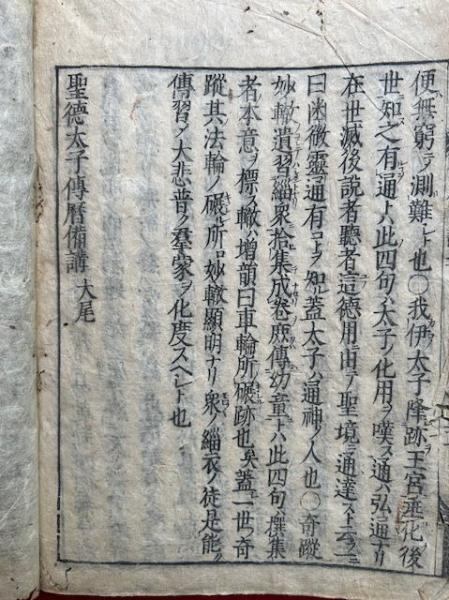 便無窮ニ乄測難シト也〇我伊太子降跡王宮垂化後
世知之有通トハ此四句ハ太子ノ化用ヲ嘆ス通ハ弘通ナリ
在世滅後説者聽者這德用由テ聖境ニ通達スト云ニ
曰幽微靈通有コトヲ知ル蓋太子ハ通神ノ人也〇奇蹤
妙轍遺習緇衆拾集成卷庶傳幼童トハ此四句ハ撰集
者本意ヲ標ス轍ハ增韻曰車輪所碾跡也矣蓋一世ノ奇
蹤其法輪ノ碾所ロ妙轍顯明ナリ衆ノ緇衣ノ徒是能ク
傳習ノ大悲普ク羣蒙ヲ化度スヘシト也
聖德太子傳曆備講大尾